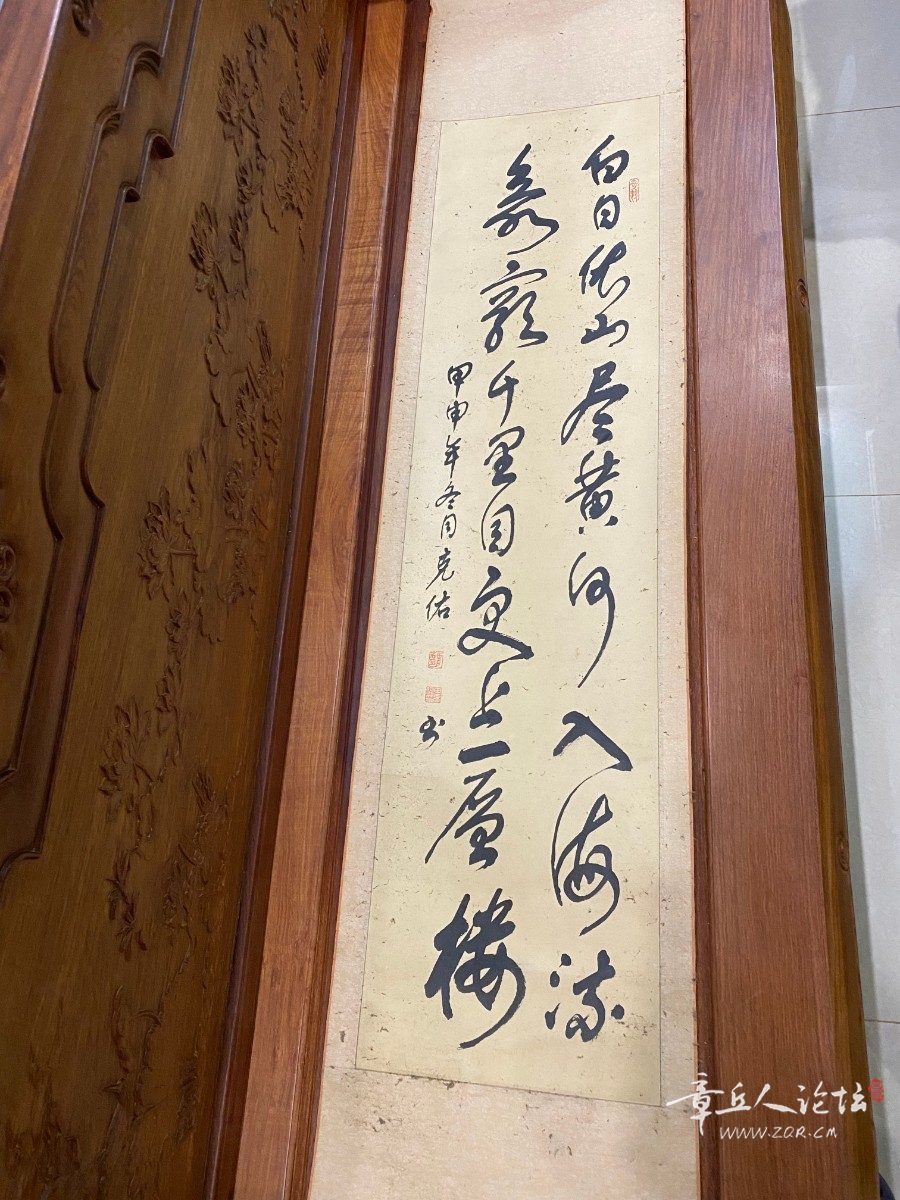 白日依山尽黄河入海流
欲穷千里目更上一层楼
甲申年冬月克佑
书
章丘人论坛
WWW.ZQR.CM